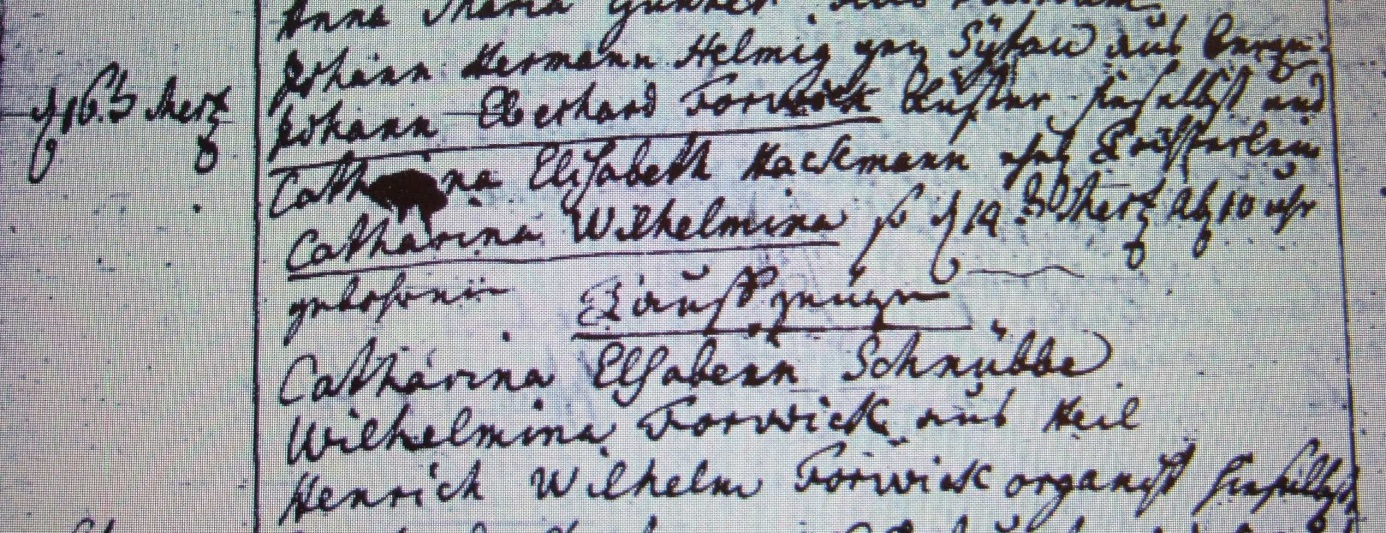 Anna Maria
Johann Hermann Helmig gen Sÿtau aus
d 16.3 Mertz Johann Eberhard Forwick Küster hieselbst und
Catharina Elisabeth Hackmann ehel Töchterlein
Catharina Wilhelmina so d 12 Mertz 10 uhr
gebohren Tauffzeugen
Catharina Elsabein Schnübbe
Wilhelmina Forwick aus Heil
Henrich Wilhelm Forwick organist hieselbst